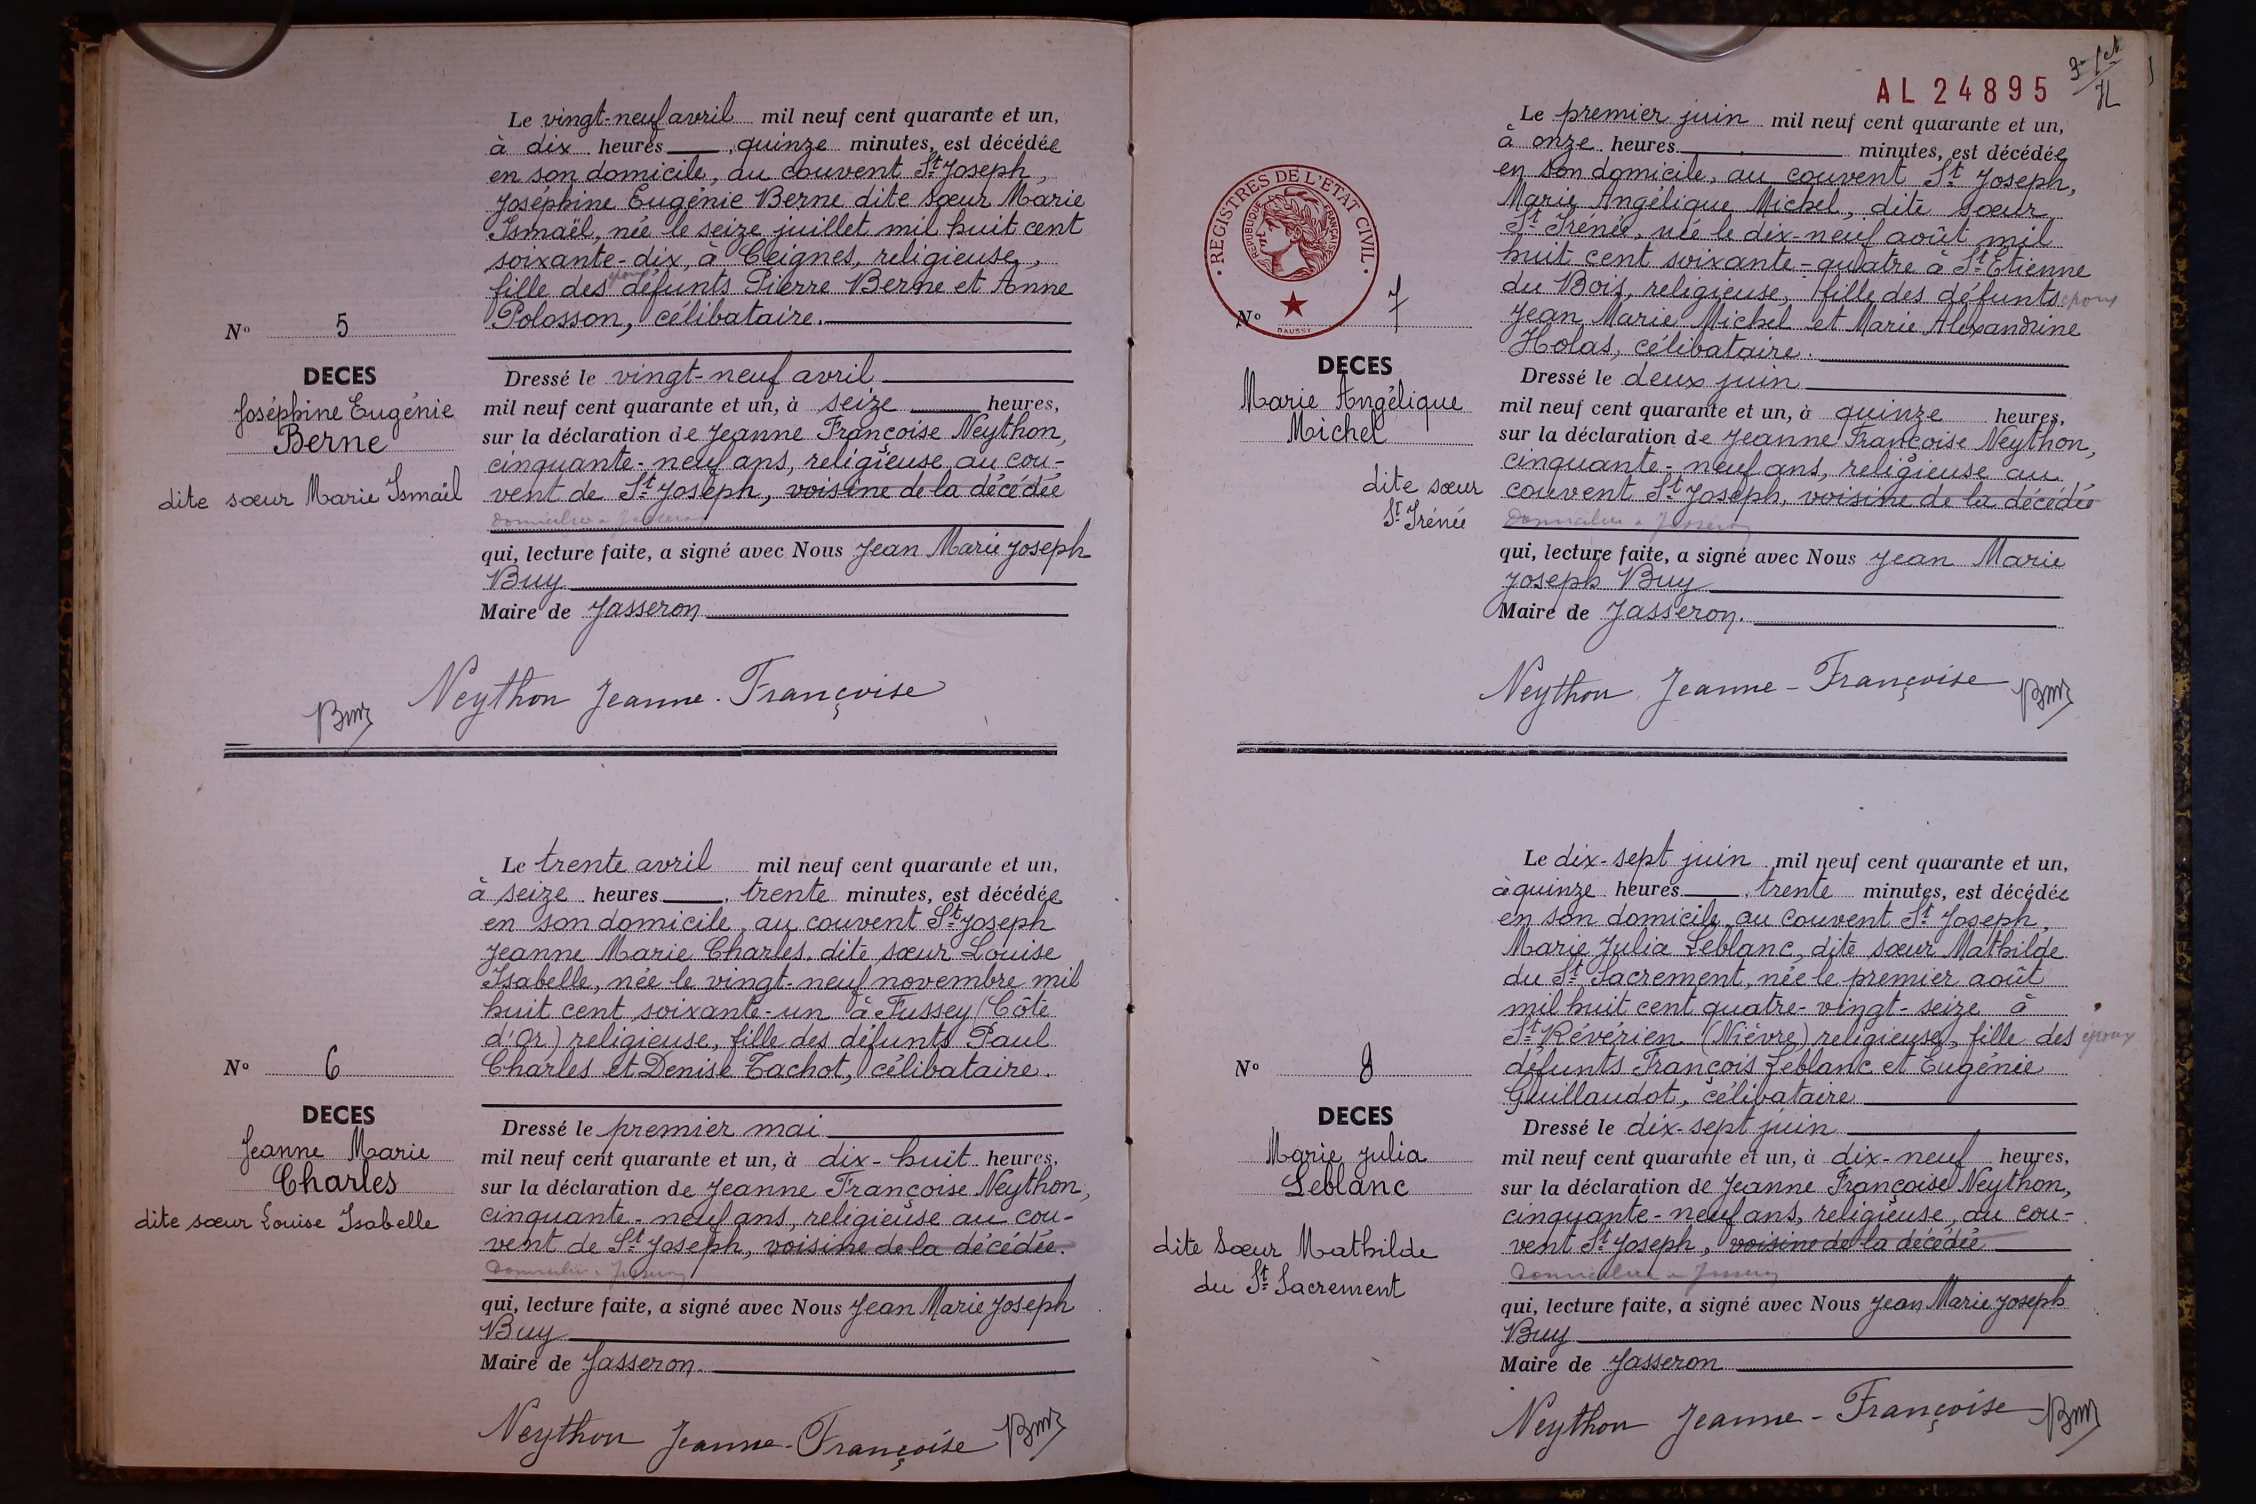 Le vingt-neuf avril mil neuf cent quarante et un,
à dix heures quinze minutes, est décédée
en son domicile, au couvent St Joseph,
Joséphine Eugénie Berne dite sœur Marie
Ismaël, née le seize juillet mil huit cent
soixante-dix, à Ceignes, religieuse,
époux
fille des défunts Pierre Berne et Anne
Polosson, célibataire.
N° 5
DECES
Joséphine Eugénie
Berne
dite sœur Marie Ismaël
Dressé le vingt-neuf avril
mil neuf cent quarante et un, à seize heures,
sur la déclaration de Jeanne Françoise Neython,
cinquante-neuf ans, religieuse au cou-
vent de St Joseph, voisine de la décédée
domiciliée à Jasseron
qui, lecture faite, a signé avec Nous Jean Marie Joseph
Buy
Maire de Jasseron
Buy Neython Jeanne-Françoise
Le trente avril mil neuf cent quarante et un,
à seize heures trente minutes, est décédée
en son domicile, au couvent St Joseph
Jeanne Marie Charles, dite sœur Louise
Isabelle, née le vingt-neuf novembre mil
huit cent soixante-un à Fussey (Côte
d'Or) religieuse, fille des défunts Paul
Charles et Denise Tachot, célibataire.
N° 6
DECES
Jeanne Marie
Charles
dite sœur Louise Isabelle
Dressé le premier mai
mil neuf cent quarante et un, à dix-huit heures,
sur la déclaration de Jeanne Françoise Neython,
cinquante-neuf ans, religieuse au cou-
vent de St Joseph, voisine de la décédée.
domiciliée à Jasseron
qui, lecture faite, a signé avec Nous Jean Marie Joseph
Buy
Maire de Jasseron.
Neython Jeanne-Françoise Buy
AL 24895
Le premier juin mil neuf cent quarante et un,
à onze heures minutes, est décédée
en son domicile, au couvent St Joseph,
Marie Angélique Michel, dite sœur
St Irénée, née le dix-neuf août mil
huit cent soixante-quatre à St Etienne
du Bois, religieuse, fille des défunts époux
Jean Marie Michel et Marie Alexandrine
Holas, célibataire.
REGISTRES DE L'ETAT CIVIL
REPUBLIQUE FRANÇAISE
DAUSSY
N° 7
DECES
Marie Angélique
Michel
dite sœur
St Irénée
Dressé le deux juin
mil neuf cent quarante et un, à quinze heures,
sur la déclaration de Jeanne Françoise Neython,
cinquante-neuf ans, religieuse au
couvent St Joseph, voisine de la décédée
domiciliée à Jasseron
qui, lecture faite, a signé avec Nous Jean Marie
Joseph Buy
Maire de Jasseron.
Neython Jeanne-Françoise Buy
Le dix-sept juin mil neuf cent quarante et un,
à quinze heures trente minutes, est décédée
en son domicile, au couvent St Joseph,
Marie Julia Leblanc, dite sœur Mathilde
du St Sacrement, née le premier août
mil huit cent quatre-vingt-seize à
St Révérien (Nièvre) religieuse, fille des époux
défunts François Leblanc et Eugénie
Guillaudot, célibataire
N° 8
DECES
Marie Julia
Leblanc
dite Sœur Mathilde
du St Sacrement
Dressé le dix-sept juin
mil neuf cent quarante et un, à dix-neuf heures,
sur la déclaration de Jeanne Françoise Neython,
cinquante-neuf ans, religieuse, au cou-
vent St Joseph, voisine de la décédée
domiciliée à Jasseron
qui, lecture faite, a signé avec Nous Jean Marie Joseph
Buy
Maire de Jasseron
Neython Jeanne-Françoise Buy